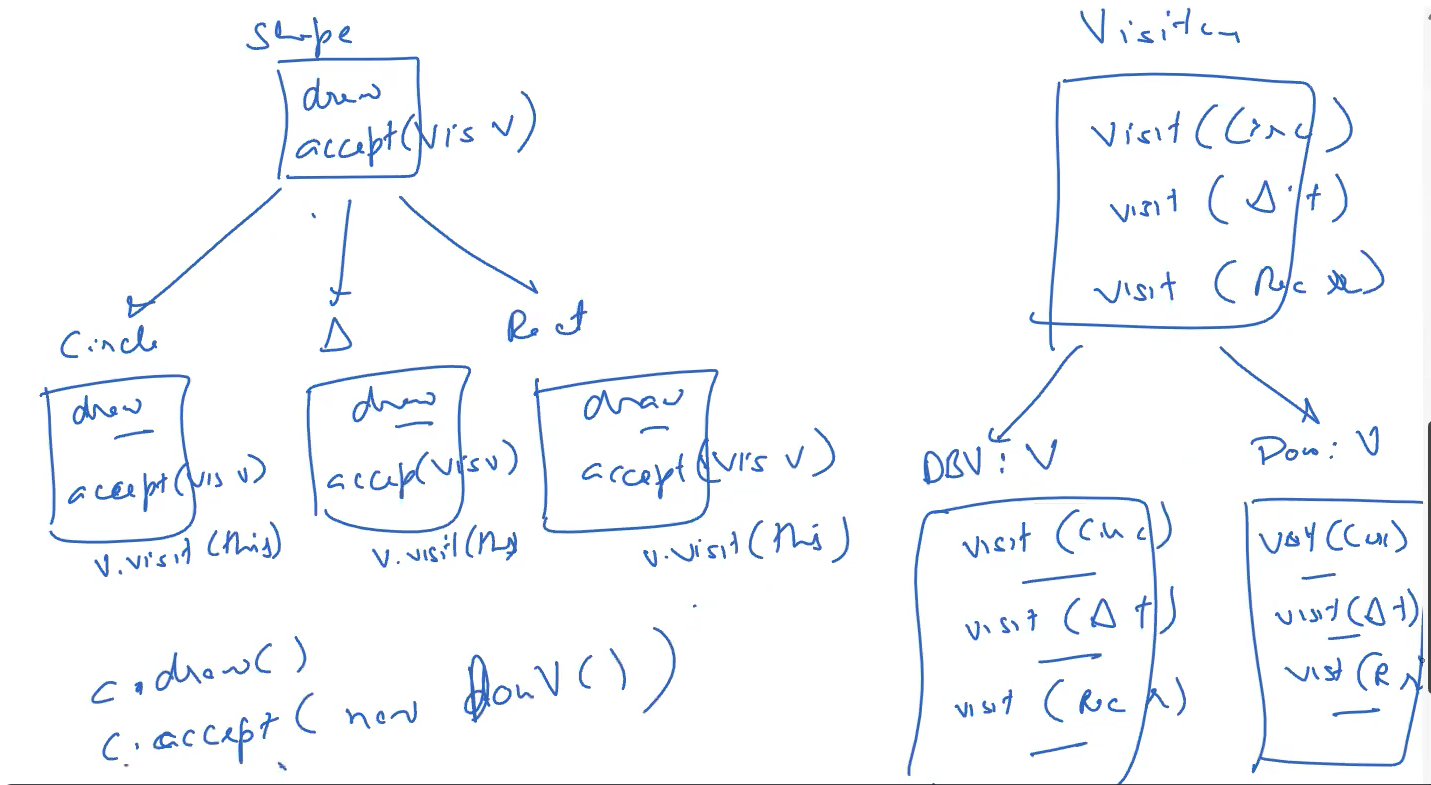 Shape
draw
accept(vis v)
Circle
Δ
Rect
draw
accept(vis v)
v.visit(this)
draw
accep(vis v)
v.visit(this)
draw
accept(vis v)
v.visit(this)
c.draw()
c.accept(new DowV())
Visitor
visit(Circ)
visit(Δ t)
visit(Rec r)
DBV: V
visit(Circ c)
visit(Δ t)
visit(Rec r)
Dow: V
visit(Circ)
visit(Δ t)
visit(R r